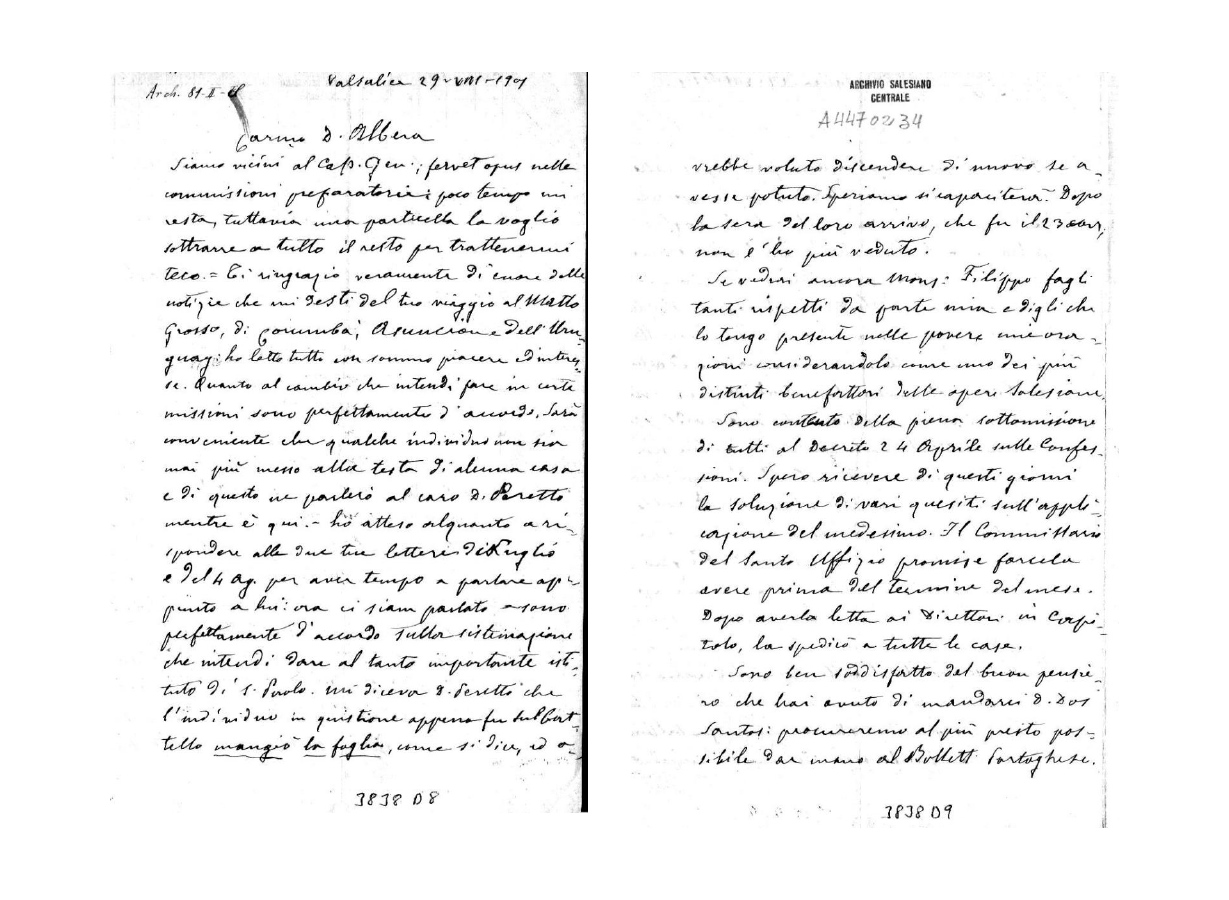 Valsalice 29-VIII-1901
Arch. 81-II-
Carmo D. Albera
Siamo vicini al Cap. Gen.; fervet opus nelle
commissioni preparatorie; poco tempo mi
resta, tuttavia una particella la voglio
sottrarre a tutto il resto per trattenermi
teco. = Ti ringrazio veramente di cuore delle
notizie che mi desti del tuo viaggio al Matto
Grosso, di Corumbà, Asuncion e dell'Uru-
guay: ho letto tutti con sommo piacere ed interes-
se. Quanto al cambio che intendi fare in certe
missioni sono perfettamente d'accordo. Sarà
conveniente che qualche individuo non sia
mai più messo alla testa di alcuna casa
e di questo ne parlerò al caro D. Peretto
mentre è qui. - ho atteso alquanto a ri-
spondere alle due tue lettere di Luglio
e del 4 Ag. per aver tempo a parlare ap-
punto a lui: ora ci siam parlato e sono
perfettamente d'accordo sulla sistemazione
che intendi dare al tanto importante isti-
tuto di S. Paolo. mi diceva D. Peretto che
l'individuo in quistione appena fu sul bat-
tello mangiò la foglia, come si dice, ed a-
3838 D8
ARCHIVIO SALESIANO
CENTRALE
A4470234
vrebbe voluto discendere di nuovo se a-
vesse potuto. Speriamo si capaciterà. Dopo
la sera del loro arrivo, che fu il 23
non l'ho più veduto.
Se vedrai ancora Mons: Filippo fagli
tanti rispetti da parte mia e digli che
lo tengo presente nelle povere mie ora-
zioni considerandolo come uno dei più
distinti benefattori delle opere Salesiane.
Sono contento della piena sottomissione
di tutti al Decreto 24 Aprile sulle Confes-
sioni. Spero ricevere di questi giorni
la soluzione di vari quesiti sull'appli-
cazione del medesimo. Il Commissario
del Santo Uffizio promise farcela
avere prima del termine del mese.
Dopo averla letta ai Direttori in Capi-
tolo, la spedirò a tutte le case.
Sono ben soddisfatto del buon pensie-
ro che hai avuto di mandarci D. Dos
Santos: procureremo al più presto pos-
sibile dar mano al Bollett Portoghese.
3838 D9